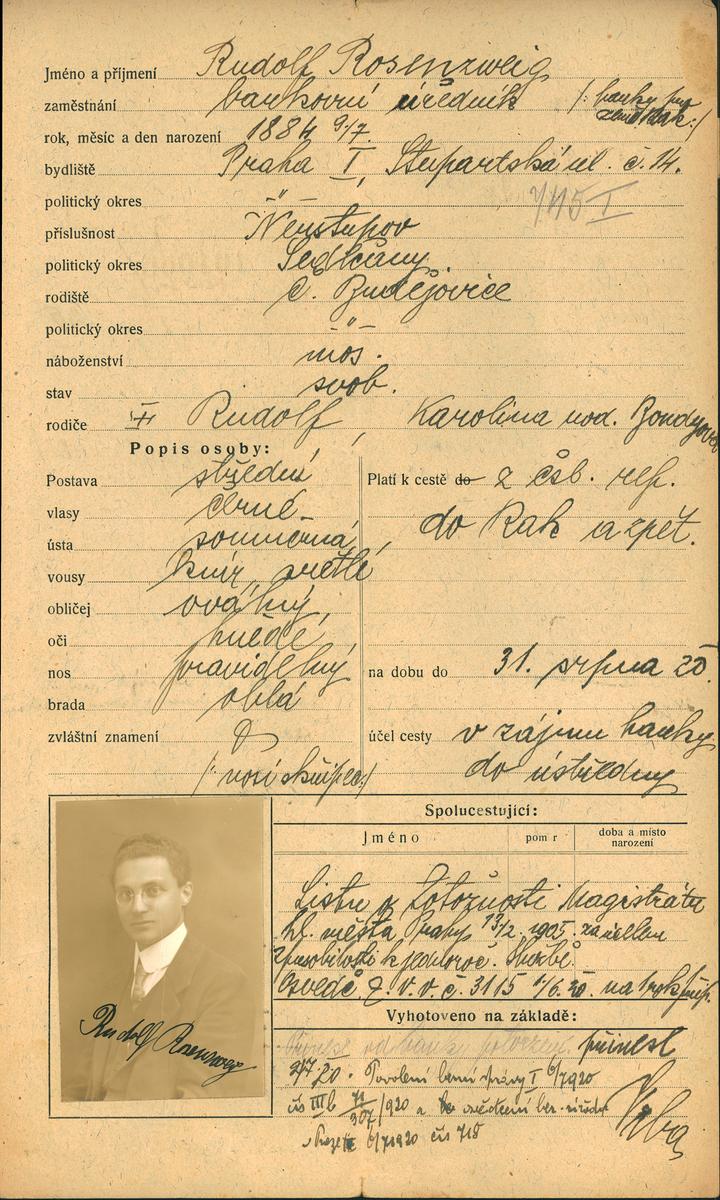 Jméno a příjmení Rudolf Rosenzweig
zaměstnání bankovní úředník /: banky pro
země Rak :/
rok, měsíc a den narození 1884 9/7.
bydliště Praha I, Štupartská ul. č. 14.
politický okres -"- 7/15 I
příslušnost Neustupov
politický okres Sedlčany
rodiště Č. Budějovice
politický okres -"-
náboženství mos.
stav svob.
rodiče Rudolf, Karolina roz. Bondyova
Popis osoby:
Postava střední
vlasy černé
ústa souměrná
vousy knír světlé
obličej oválný
oči hnědé
nos pravidelný
brada oblá
zvláštní znamení
/: nosí skřipec :/
Platí k cestě do z čsb. rep.
do Rak a zpět.
na dobu do 31. srpna 20.
účel cesty v zájmu banky
do ústředny
Spolucestující:
Jméno pom r doba a místo
narození
Listu o totožnosti Magistrátu
hl. města Prahy 13/2. 1905. za účelem
způsobilosti k jednoroč. službě.
Osvědč. Z. V. V. č. 3115 1/6. 20. na 1 rok
Vyhotoveno na základě:
přinesl
2/7. 20. Povolení berní správy I 6/7 1920
čís III b 72/307/920 a osvědčení ber.
6/7 1920 čís 718
Rudolf Rosenzweig